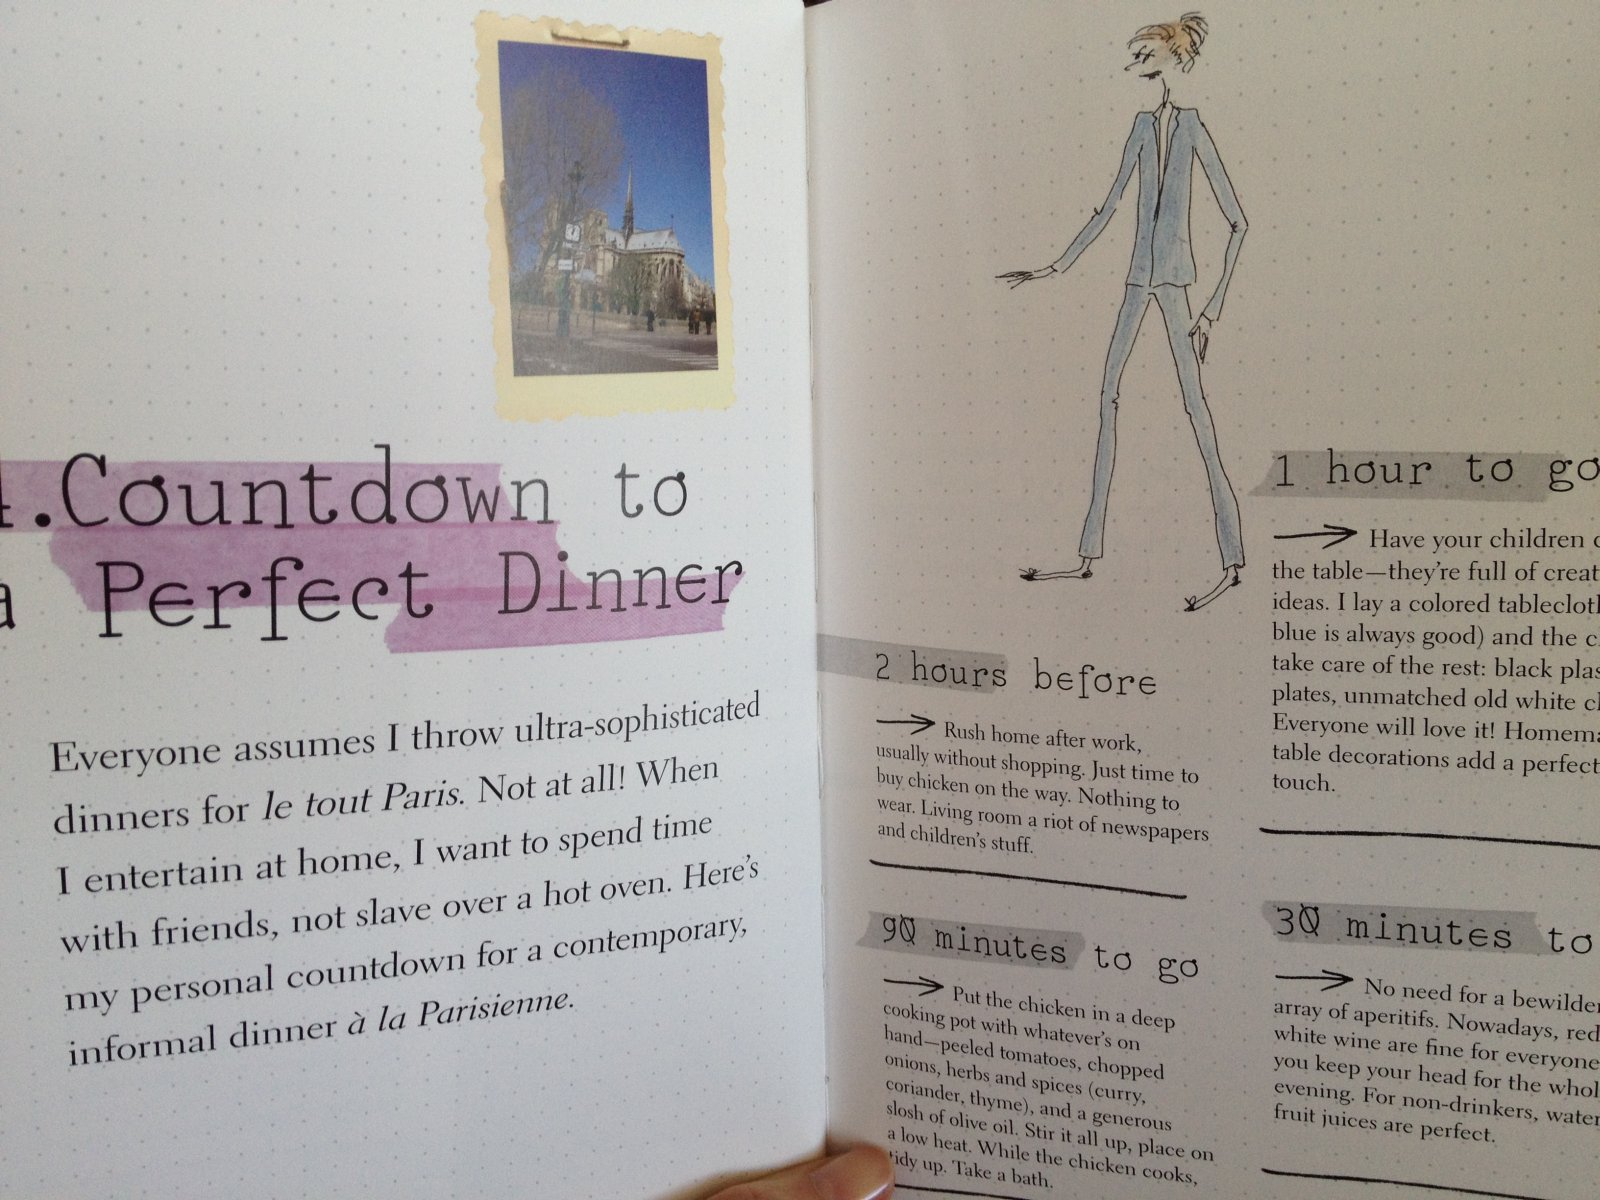 .Countdown to
a Perfect Dinner
Everyone assumes I throw ultra-sophisticated
dinners for le tout Paris. Not at all! When
I entertain at home, I want to spend time
with friends, not slave over a hot oven. Here's
my personal countdown for a contemporary,
informal dinner à la Parisienne.
2 hours before
Rush home after work,
usually without shopping. Just time to
buy chicken on the way. Nothing to
wear. Living room a riot of newspapers
and children's stuff.
90 minutes to go
Put the chicken in a deep
cooking pot with whatever's on
hand—peeled tomatoes, chopped
onions, herbs and spices (curry,
coriander, thyme), and a generous
slosh of olive oil. Stir it all up, place on
a low heat. While the chicken cooks,
tidy up. Take a bath.
1 hour to go
Have your children
the table—they're full of
ideas. I lay a colored
blue is always good) and the
take care of the rest: black
plates, unmatched old white
Everyone will love it!
table decorations add a perfect
touch.
30 minutes to
No need for a
array of aperitifs. Nowadays, red
white wine are fine for everyone
you keep your head for the
evening. For non-drinkers, water
fruit juices are perfect.